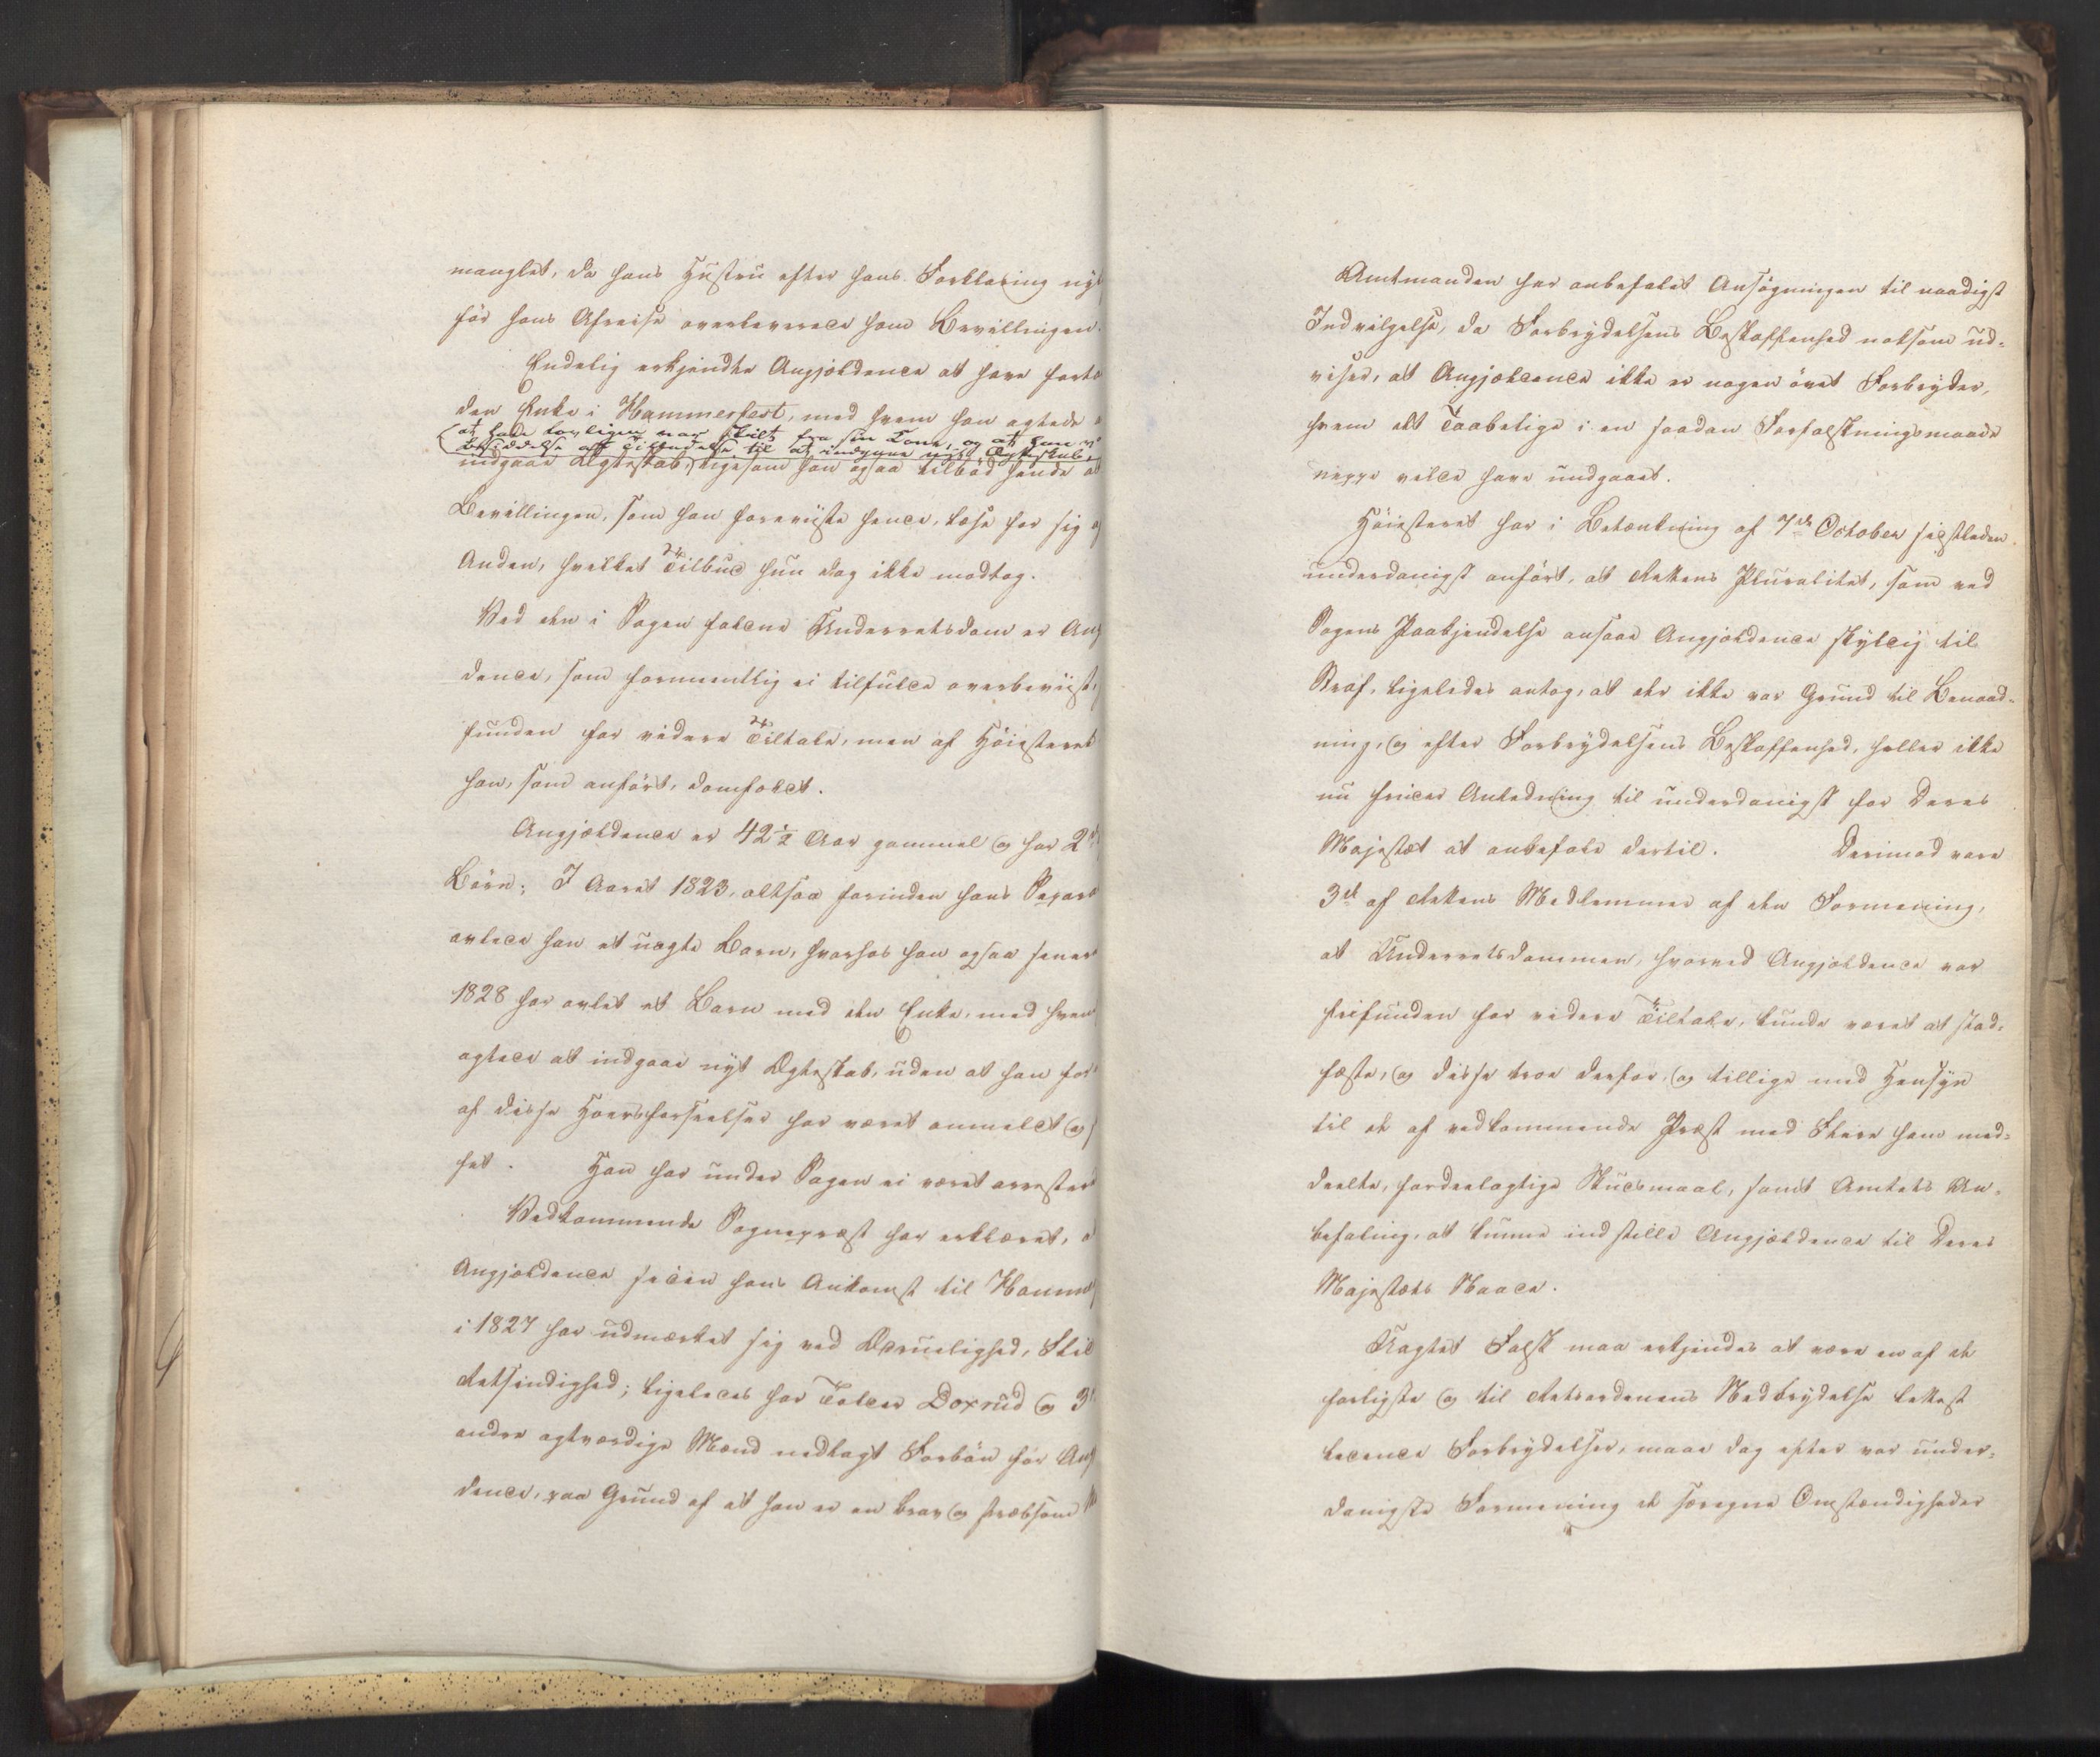 manglet, da hans Hustru efter hans Forklaring nys
før hans Afreise overleverede ham Bevillingen.
Endelig erkjendte Angjældende at have forta
den Enke i Hammerfest, med hvem han agtede a
at have lovligen var skilt fra sin Kone, og at han v
besiddelse af Tilladelse til at indgaae nyt Ægteskab,
indgaae Ægteskab, ligesom han ogsaa tilbød hende at
Bevillingen, som han foreviiste hende, læse for sig og
Anden, hvilket Tilbud hun dog ikke modtog.
Ved den i Sagen faldne Underretsdom er Ang
dende, som formeentlig ei tilfulde overbeviist,
funden for videre Tiltale, men af Høiesteret
han, som anført, domfældt.
Angjældende er 42½ Aar gammel og har 2de
Børn; I Aaret 1823, altsaa forinden hans Separa
avlede han et uægte Barn, hvorhos han ogsaa sener
1828 har avlet et Barn med den Enke, med hvem
agtede at indgaae nyt Ægteskab, uden at han for
af disse Hoersforseelser har været anmeldt og
fet. Han har under Sagen ei været arrester
Vedkommende Sognepræst har erklæret, a
Angjældende siden hans Ankomst til Hamme
i 1827 har udmærket sig ved Ædruelighed, Stil
Retsindighed; ligeledes har Tolder Doxrud og 3de
andre agtværdige Mænd nedlagt Forbøn for Ang
dende, paa Grund af at han er en brav og stræbsom M
Amtmanden har anbefalet Ansøgningen til naadigst
Indvilgelse, da Forbrydelsens Beskaffenhed noksom ud-
viser, at Angjældende ikke er nogen øvet Forbryder,
hvem det Taabelige i en saadan Forfalskningsmaade
neppe vilde have undgaaet.
Høiesteret har i Betænkning af 7de October sidstleden
underdanigst anført, at Rettens Pluralitet, som ved
Sagens Paakjendelse ansaae Angjældende skyldig til
Straf, ligeledes antog, at der ikke var Grund til Benaad-
ning, og efter Forbrydelsens Beskaffenhed, heller ikke
nu finder Anledning til underdanigst for Deres
Majestæt at anbefale dertil. Derimod vare
3de af Rettens Medlemmer af den Formening,
at Underretsdommen, hvorved Angjældende var
frifunden for videre Tiltale, burde været at stad-
fæste, og disse troe derfor, og tillige med Hensyn
til de af vedkommende Præst med Flere ham med-
deelte, fordeelagtige Skudsmaal, samt Amtets An-
befaling, at kunne indstille Angjældende til Deres
Majestæts Naade.
Uagtet Falsk maa erkjendes at være en af de
farligste og til Retsordenens Nedbrydelse lettest
ledende Forbrydelser, maae dog efter vor under-
danigste Formening de særegne Omstændigheder